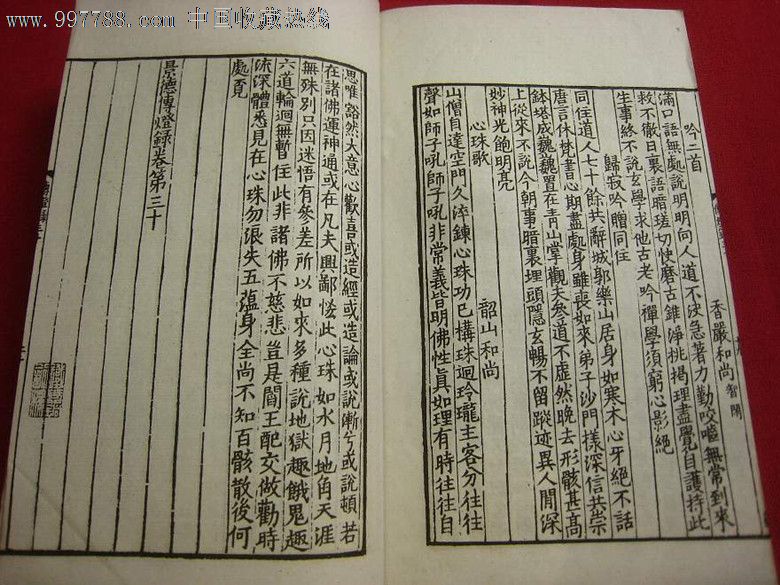 www.997788.com 中国收藏热线
吟二首
香嚴和尚智閑
滿口語無處說明明向人道不決急著力勤咬嚙無常到來
救不徹日裏語暗瑳切快磨古錐淨挑揭理盡覺自護持此
生事終不說玄學求他古老吟禪學須窮心影絕
歸寂吟贈同住
同住道人七十餘共辭城郭樂山居身如寒木心牙絕不話
唐言休梵書心期盡處身雖喪如來弟子沙門樣深信共崇
鉢塔成巍巍置在青山掌觀夫參道不虛然晚去形骸甚高
上從來不說今朝事暗裏埋頭隱玄暢不留蹤迹異人間深
妙神光飽明亮
心珠歌
韶山和尚
山僧自達空門久淬鍊心珠功已構珠迴玲瓏主客分往往
聲如師子吼師子吼非常義皆明佛性眞如理有時往往自
思惟豁然大意心歡喜或造經或造論或說漸兮或說頓若
在諸佛運神通或在凡夫興鄙悋此心珠如水月地角天涯
無殊別只因迷悟有參差所以如來多種說地獄趣餓鬼趣
六道輪迴無暫住此非諸佛不慈悲豈是閻王配交做勸時
流深體悉見在心珠勿浪失五蘊身全尚不知百骸散後何
處覓
景德傳燈錄卷第三十